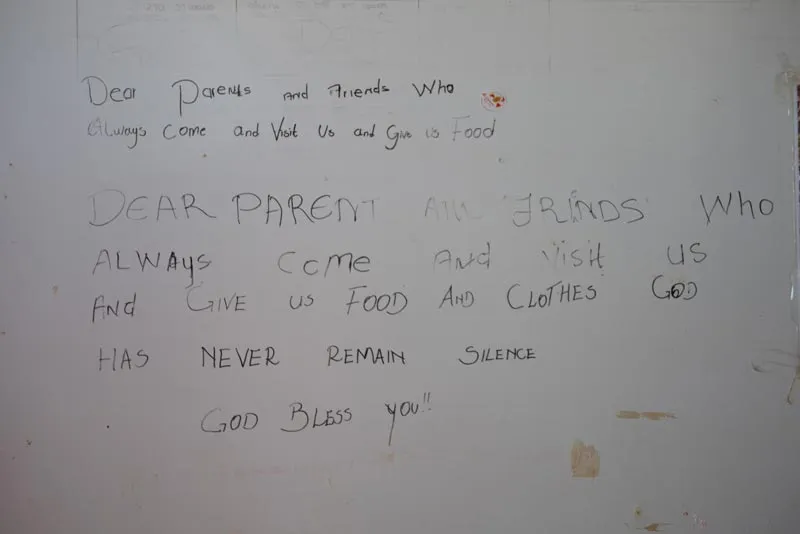 Dear Parents And Friends Who
Always Come and Visit Us and Give us Food
DEAR PARENT AND FRINDS WHO
ALWAYS COME AND VISIT US
AND GIVE US FOOD AND CLOTHES GOD
HAS NEVER REMAIN SILENCE
GOD BLESS YOU!!